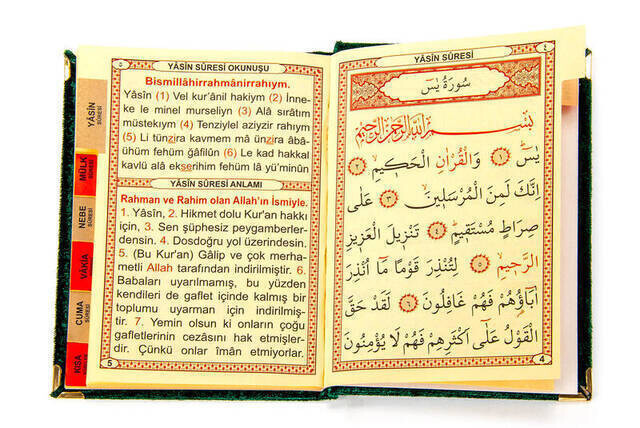 YÂSİN SÛRESİ OKUNUŞU
Bismillâhirrahmânirrahıym.
Yâsîn (1) Vel kur'ânil hakiym (2) İnne-
ke le minel murseliyn (3) Alâ sırâtım
müstekıym (4) Tenziylel aziyzir rahıym
(5) Li tünzira kavmem mâ ünzira âbâ-
ühüm fehüm ğâfilûn (6) Le kad hakkal
kavlü alâ ekserihim fehüm lâ yü'minûn
YÂSÎN SÛRESİ ANLAMI
Rahman ve Rahim olan Allah'ın İsmiyle.
1. Yâsîn, 2. Hikmet dolu Kur'an hakkı
için, 3. Sen şüphesiz peygamberler-
densin. 4. Dosdoğru yol üzerindesin.
5. (Bu Kur'an) Gâlip ve çok merha-
metli Allah tarafından indirilmiştir. 6.
Babaları uyarılmamış, bu yüzden
kendileri de gaflet içinde kalmış bir
toplumu uyarman için indirilmiş-
tir. 7. Yemin olsun ki onların çoğu
gafletlerinin cezasını hak etmişler-
dir. Çünkü onlar îmân etmiyorlar.
5
YÂSİN SÛRESİ
MÜLK SÛRESİ
NEBE SÛRESİ
VAKIA
CUMA SÛRESİ
KISA
YÂSİN SÛRESİ
٤
سُورَةُ يٰسٓ
بِسْمِ اللّٰهِ الرَّحْمٰنِ الرَّحِيمِ
يٰسٓ ﴿١﴾ وَالْقُرْاٰنِ الْحَكِيمِ ﴿٢﴾
اِنَّكَ لَمِنَ الْمُرْسَلِينَ ﴿٣﴾ عَلٰى
صِرَاطٍ مُسْتَقِيمٍ ﴿٤﴾ تَنْزِيلَ الْعَزِيزِ
الرَّحِيمِ ﴿٥﴾ لِتُنْذِرَ قَوْمًا مَٓا اُنْذِرَ
اٰبَٓاؤُ۬هُمْ فَهُمْ غَافِلُونَ ﴿٦﴾ لَقَدْ حَقَّ
الْقَوْلُ عَلٰٓى اَكْثَرِهِمْ فَهُمْ لَا يُؤْمِنُونَ
4